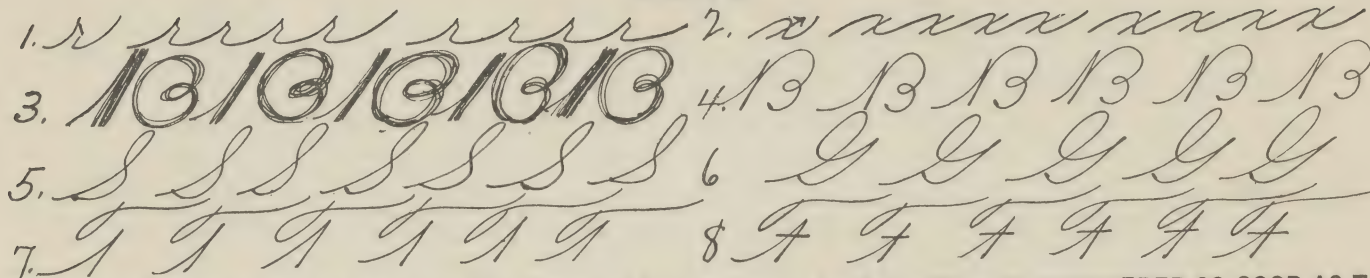 1. r r r r r r r r r
2. x x x x x x x x x
3. B B B B B
4. B B B B B B
5. S S S S S S S
6 G G G G G
7. T T T T T T
8 F F F F F F